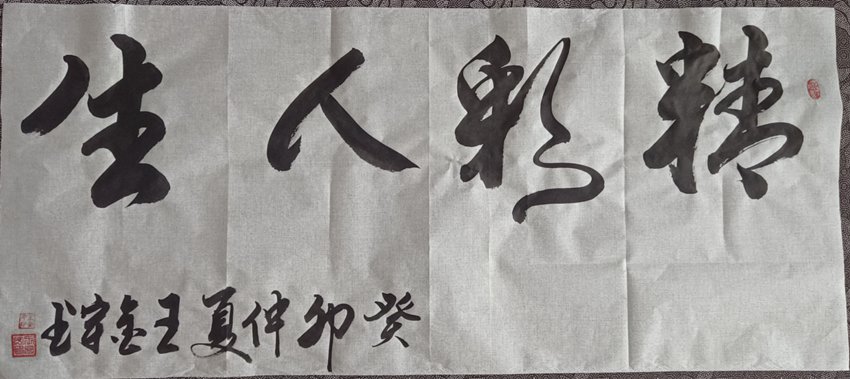 精彩人生
癸卯仲夏王金宗书